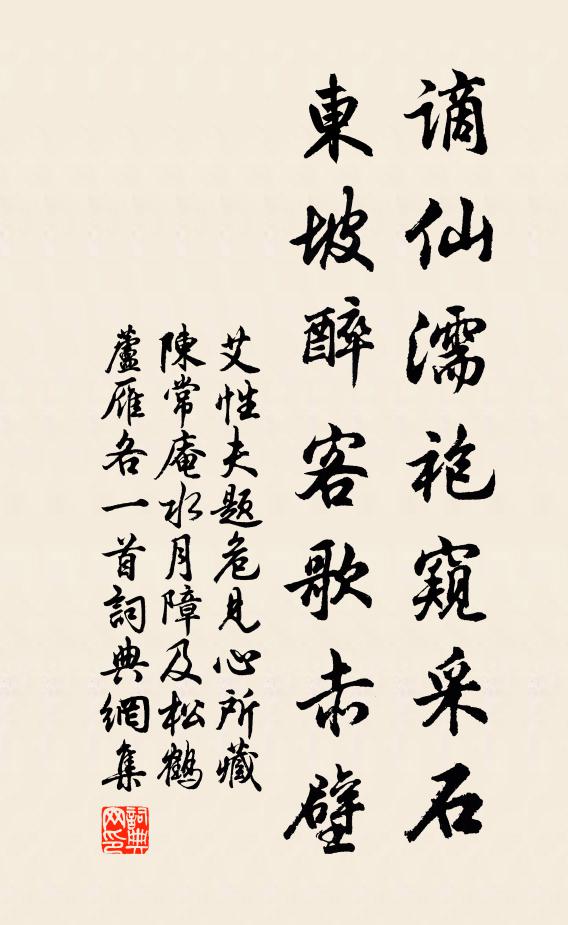 謫仙濡袍窺采石
東坡醉客歌赤壁
艾性夫題危見心所藏
陳常庵水月障及松鶴
蘆雁各一首詞典網集
詞典
网印